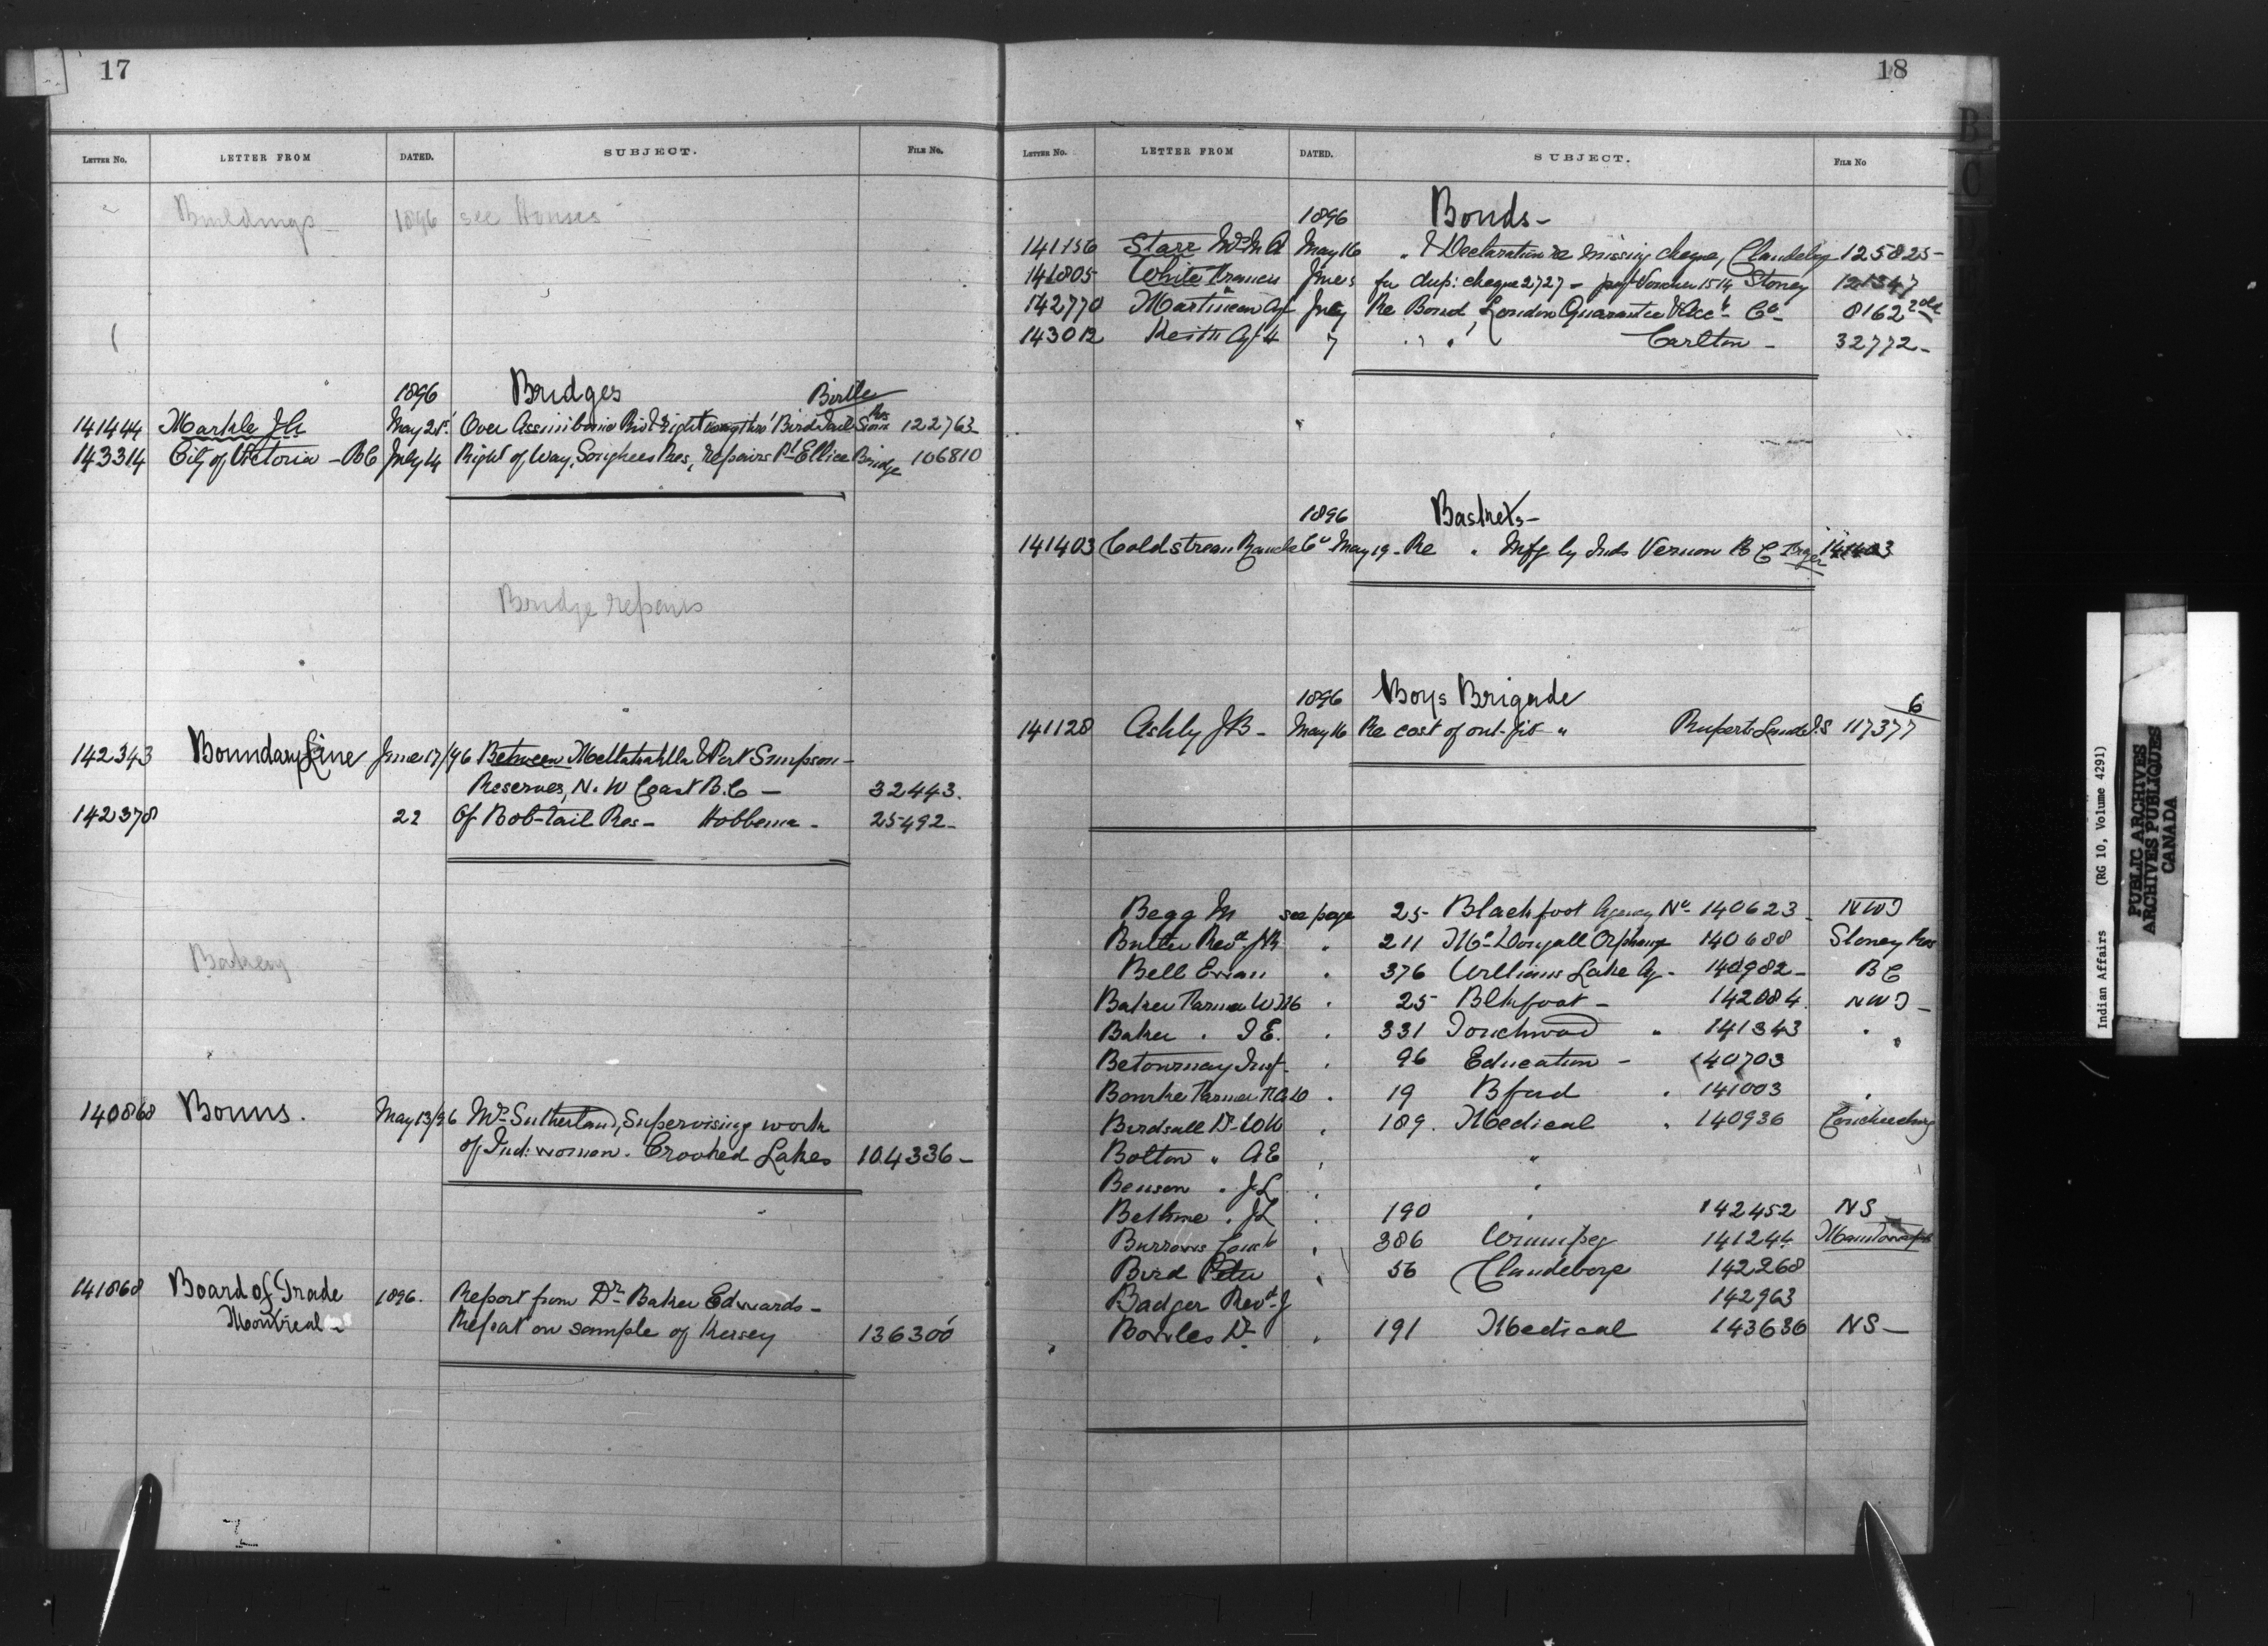 17
LETTER No. LETTER FROM DATED. SUBJECT. FILE No.
Buildings 1896 see Houses
1896 Bridges Birtle
141444 Markle J A May 21st Over Assiniboine Riv & right way thro' Bird Tail Sioux Res 122763
143314 City of Victoria - BC July 14 Right of Way, Songhees Res, repairs Pt Ellice Bridge 106810
Bridge repairs
142343 Boundary Line June 17/96 Between Metlakahtla & Port Simpson -
Reserves, N. W Coast B.C - 32443.
142378 22 Of Bob-tail Res - Hobbema - 25492 -
Bakery
140868 Bonus. May 13/96 Mr Sutherland, Supervising work
of Ind: women. Crooked Lakes 104336 -
141868 Board of Trade 1896. Report from Dr Baker Edwards -
Montreal - Repeat on sample of Kersey 136300
18
LETTER No. LETTER FROM DATED. SUBJECT. FILE No
1896 Bonds -
141156 Starr May 16 " & Declaration re missing cheque, Clandeboy 125825 -
141805 White Francis June 5 for dup: cheque 2727 - Voucher 1514 Stoney 121347
142770 Martineau Agt July Re Bond, London Guarantee & Acct Co - 8162
143012 Keith Agt H 7 " " Carlton - 32772 -
1896 Baskets -
141403 Coldstream Ranch Co May 19 - Re " Mfg by Inds Vernon B C 141403
1896 Boys Brigade 6
141128 Ashby J B - May 16 Re cost of out-fit " Ruperts Land I.S 117377
Begg M see page 25 - Blackfoot Agency No - 140623 - NWT
Butler Revd J R " 211 McDougall Orphange 140688 Stoney Res
Bell Ewan " 376 Williams Lake Ag - 140982 - B C
Baker Farmer W M " 25 - Blkfoot - 142084 NWT -
Baker " I E. " 331 Touchwood " 141343 "
Betournay Insp - " 96 Education - 140703 "
Bourke Farmer " 19 Bford " 141003 "
Birdsall Dr W W " 189. Medical " 140936 Couchiching
Bolton " A E " "
Benson " J L " "
Bethune " J L " 190 " 142452 NS
Burrows " 386 Winnipeg 141244
Bird Peter " 56 Clandeboye 142268
Badger Revd J 142963
Bowles Dr " 191 Medical 143636 NS -
B
C
Indian Affairs (RG 10, Volume 4291)
PUBLIC ARCHIVES
ARCHIVES PUBLIQUES
CANADA